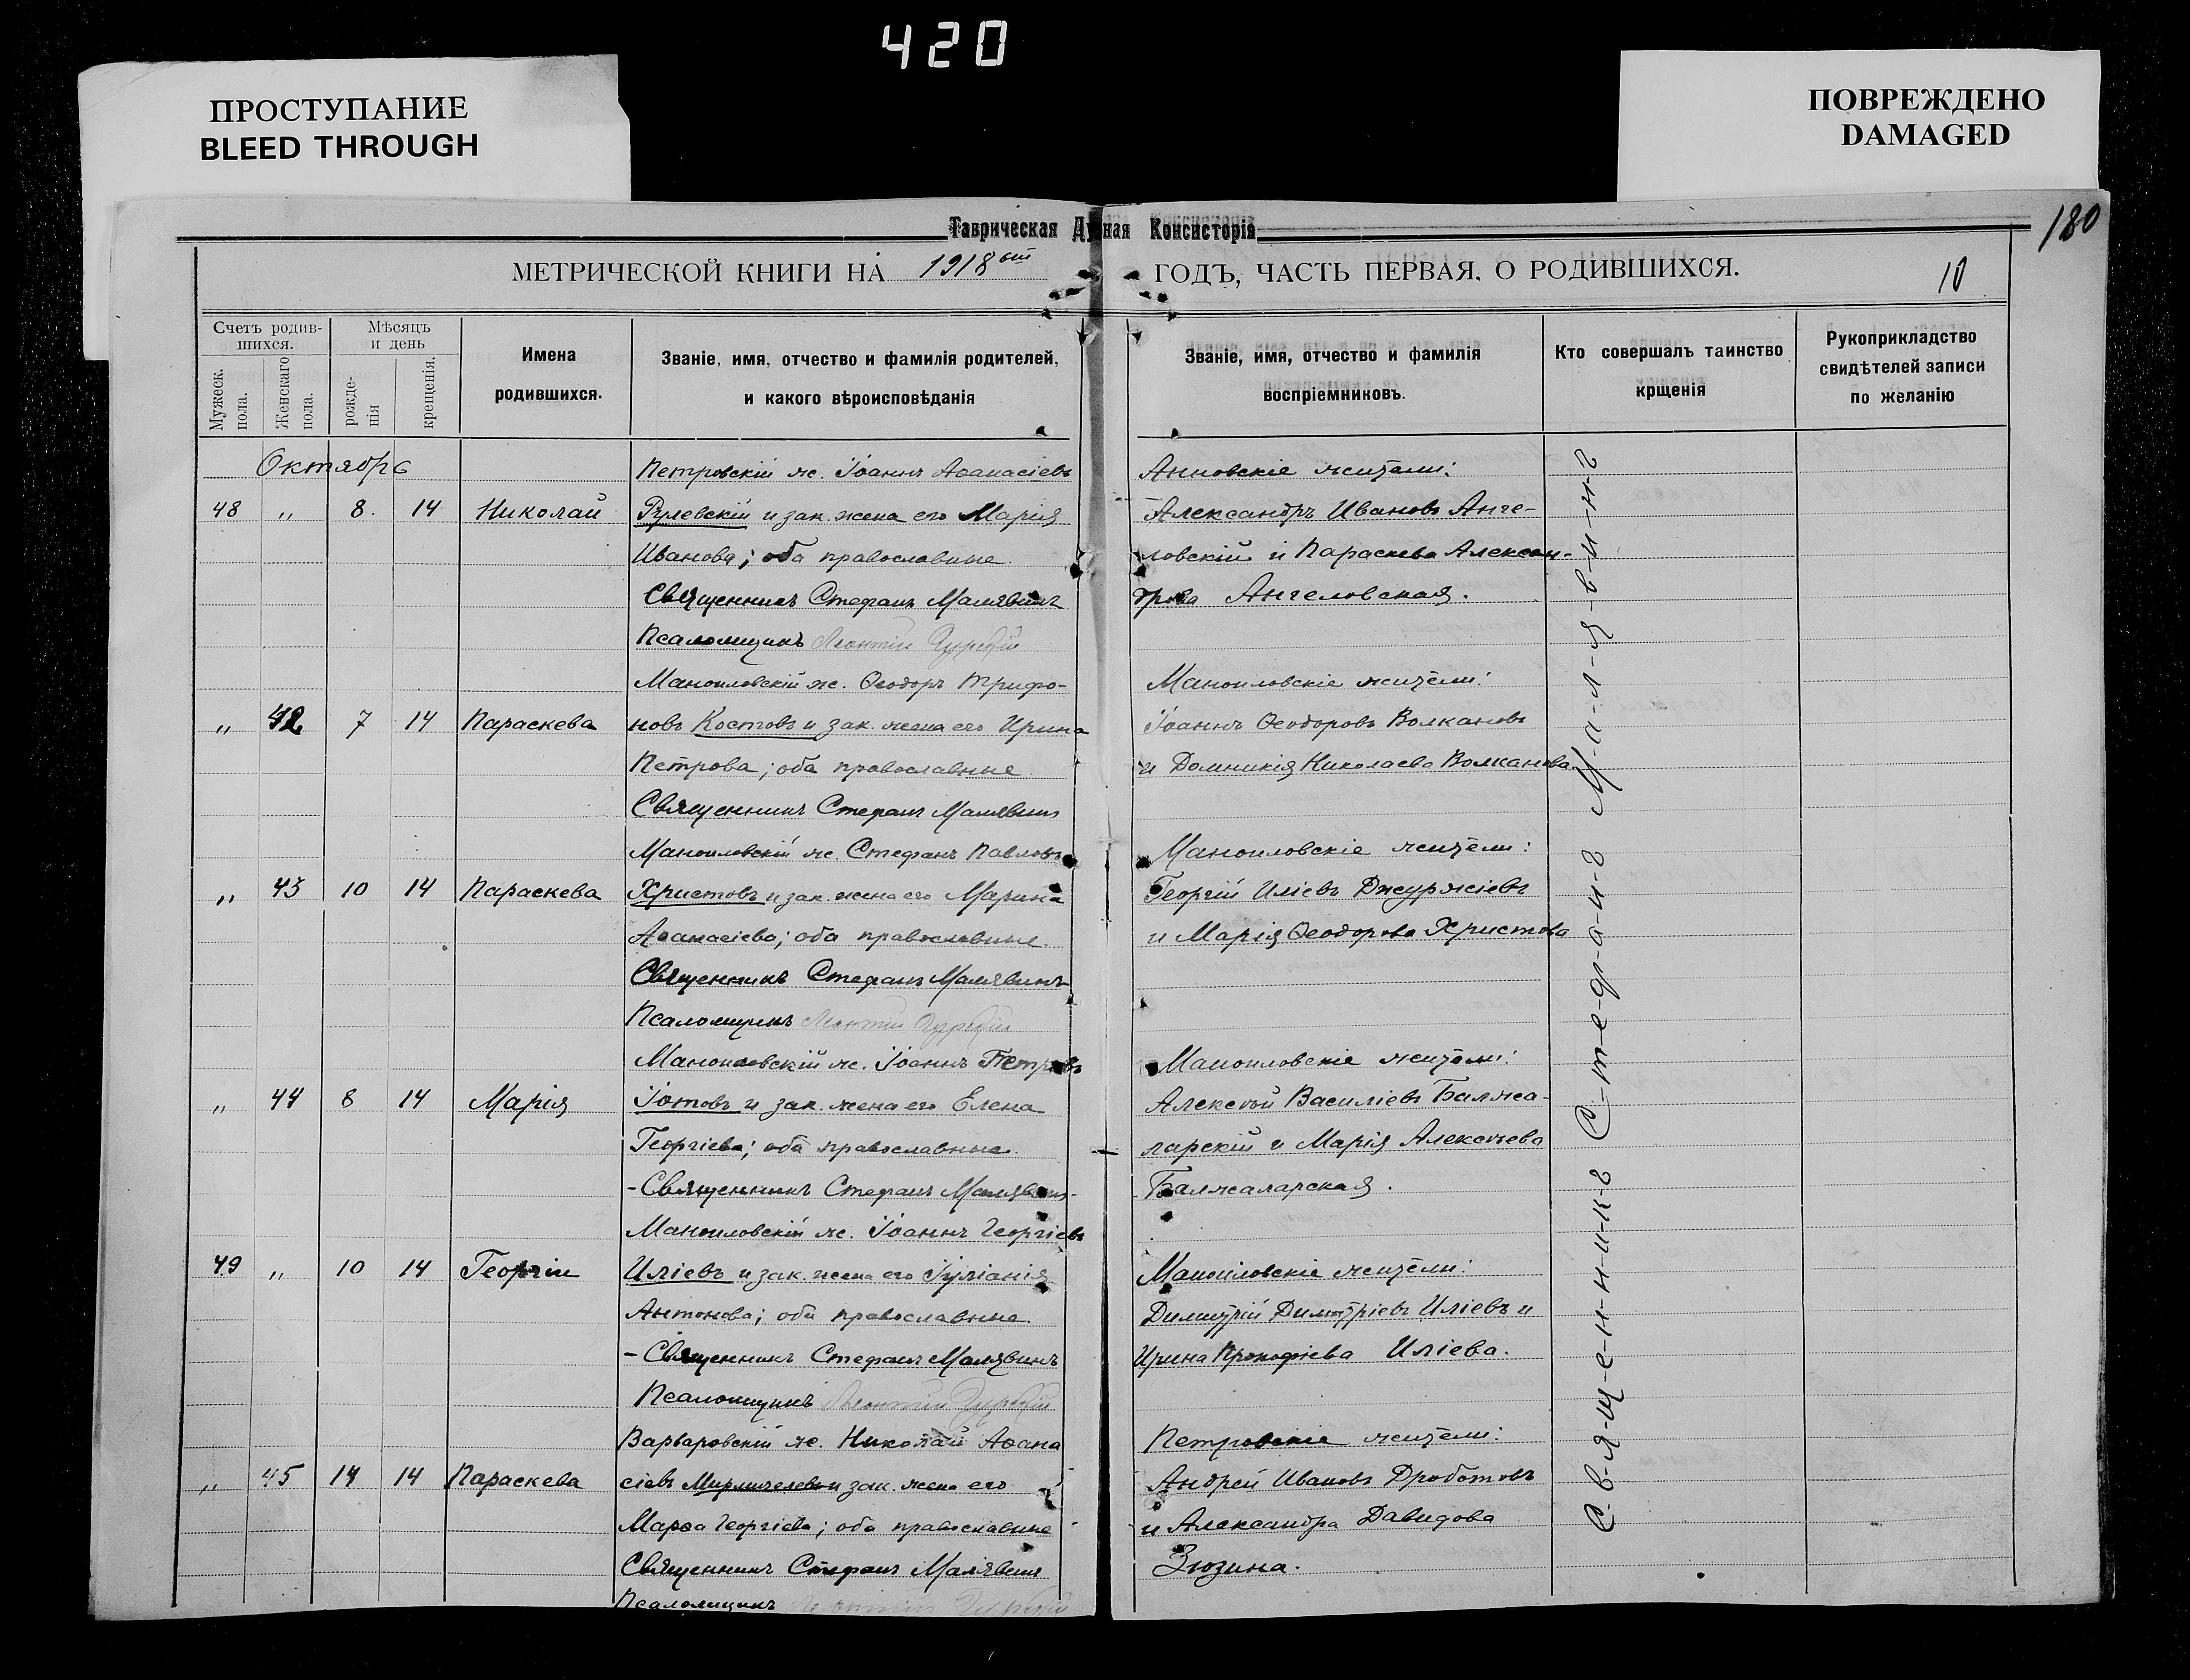 420
ПРОСТУПАНИЕ
BLEED THROUGH
ПОВРЕЖДЕНО
DAMAGED
180
Таврическая Духовная Консисторія
МЕТРИЧЕСКОЙ КНИГИ НА 1918 ГОДЪ, ЧАСТЬ ПЕРВАЯ. О РОДИВШИХСЯ.
10
Счетъ родив-
шихся.
Мужеск.
пола.
Женскаго
пола.
Мѣсяцъ
и день
рожде-
нія
крещенія.
Имена
родившихся.
Званіе, имя, отчество и фамилія родителей,
и какого вѣроисповѣданія
Званіе, имя, отчество и фамилія
воспріемниковъ.
Кто совершалъ таинство
крщенія
Рукоприкладство
свидѣтелей записи
по желанію
Октябрь
Петровскій ж. Іоаннъ Аѳанасіевъ
Анновскіе жители:
48 " 8. 14 Николай
Рулевскій и зак. жена его Марія
Александръ Ивановъ Анге-
Иванова; оба православные.
ловскій и Параскева Алексан-
Священникъ Стефанъ Малявинъ
дрова Ангеловская.
Псаломщикъ Леонтій
Маноиловскій ж. Ѳеодоръ Трифо-
Маноиловскіе жители:
" 42 7 14 Параскева
новъ Костовъ и зак. жена его Ирина
Іоаннъ Ѳеодоровъ Волкановъ
Петрова; оба православные.
и Домникія Николаева Волканова.
Священникъ Стефанъ Малявинъ
Маноиловскій ж. Стефанъ Павловъ
Маноиловскіе жители:
" 43 10 14 Параскева
Христовъ и зак. жена его Марина
Георгій Иліевъ Джуржіевъ
Аѳанасіева; оба православные.
и Марія Ѳеодорова Христова
Священникъ Стефанъ Малявинъ
Псаломщикъ Леонтій
Маноиловскій ж. Іоаннъ Петровъ
Маноиловскіе жители:
" 44 8 14 Марія
Іотовъ и зак. жена его Елена
Алексѣй Василіевъ Балжа-
Георгіева; оба православные.
ларскій и Марія Алексѣева
- Священникъ Стефанъ Малявинъ-
Балжаларская.
Маноиловскій ж. Іоаннъ Георгіевъ
49 " 10 14 Георгій
Иліевъ и зак. жена его Іуліанія
Маноиловскіе жители:
Антонова; оба православные.
Димитрій Димитріевъ Иліевъ и
- Священникъ Стефанъ Малявинъ
Ирина Прокофіева Иліева.
Псаломщикъ Леонтій
Варваровскій ж. Николай Аѳана
Петровскіе жители:
" 45 14 14 Параскева
сіевъ и зак. жена его
Андрей Ивановъ Дроботовъ
Марѳа Георгіева; оба православные
и Александра Давидова
Священникъ Стефанъ Малявинъ
Зюзина.
Псаломщикъ Леонтій
С-в-я-щ-е-н-н-и-к-ъ С-т-е-ф-а-н-ъ М-а-л-я-в-и-н-ъ